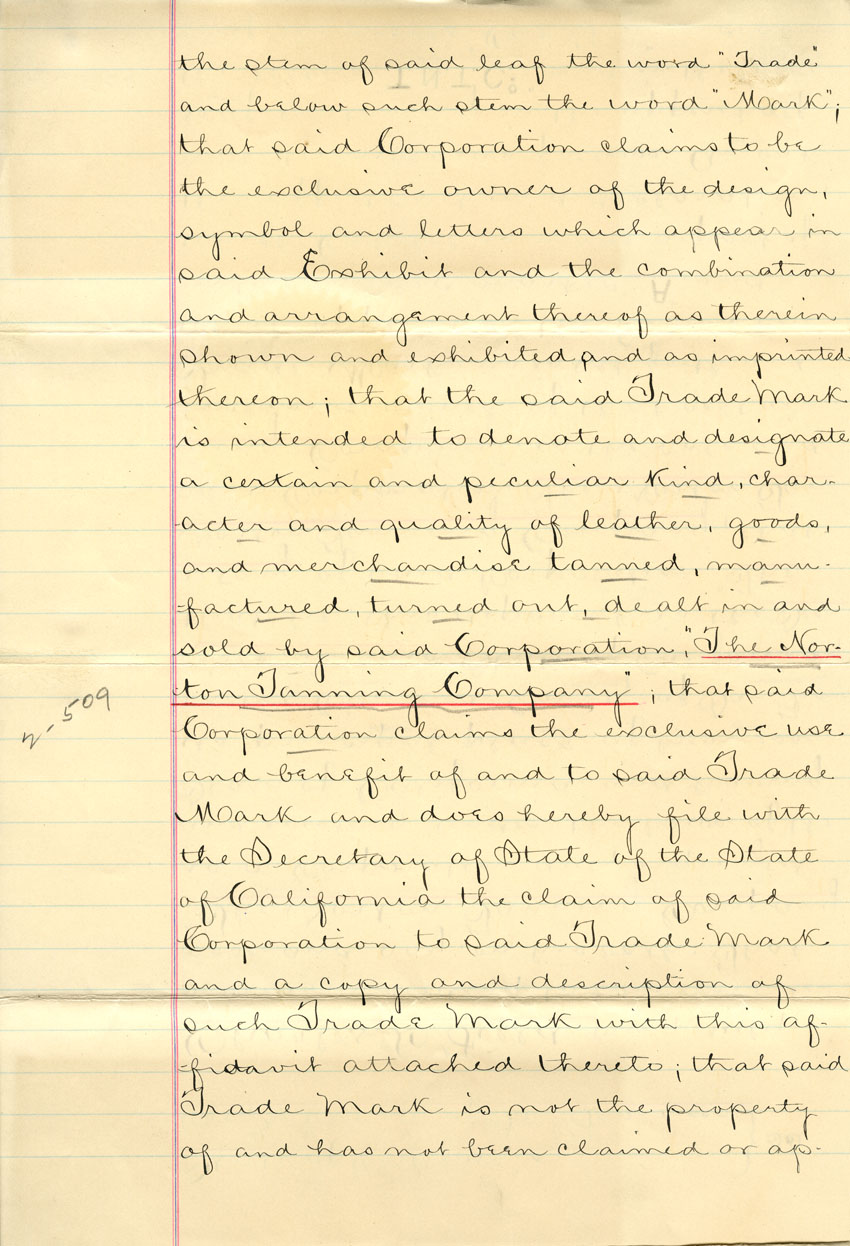 the stem of said leaf the word "Trade"
and below such stem the word "Mark";
that said Corporation claims to be
the exclusive owner of the design,
symbol and letters which appear in
said Exhibit and the combination
and arrangement thereof as therein
shown and exhibited and as imprinted
thereon; that the said Trade Mark
is intended to denote and designate
a certain and peculiar kind, char-
acter and quality of leather, goods,
and merchandise tanned, manu-
factured, turned out, dealt in and
sold by said Corporation, "The Nor-
ton Tanning Company"; that said
2-509
Corporation claims the exclusive use
and benefit of and to said Trade
Mark and does hereby file with
the Secretary of State of the State
of California the claim of said
Corporation to said Trade Mark
and a copy and description of
such Trade Mark with this af-
fidavit attached thereto; that said
Trade Mark is not the property
of and has not been claimed or ap-